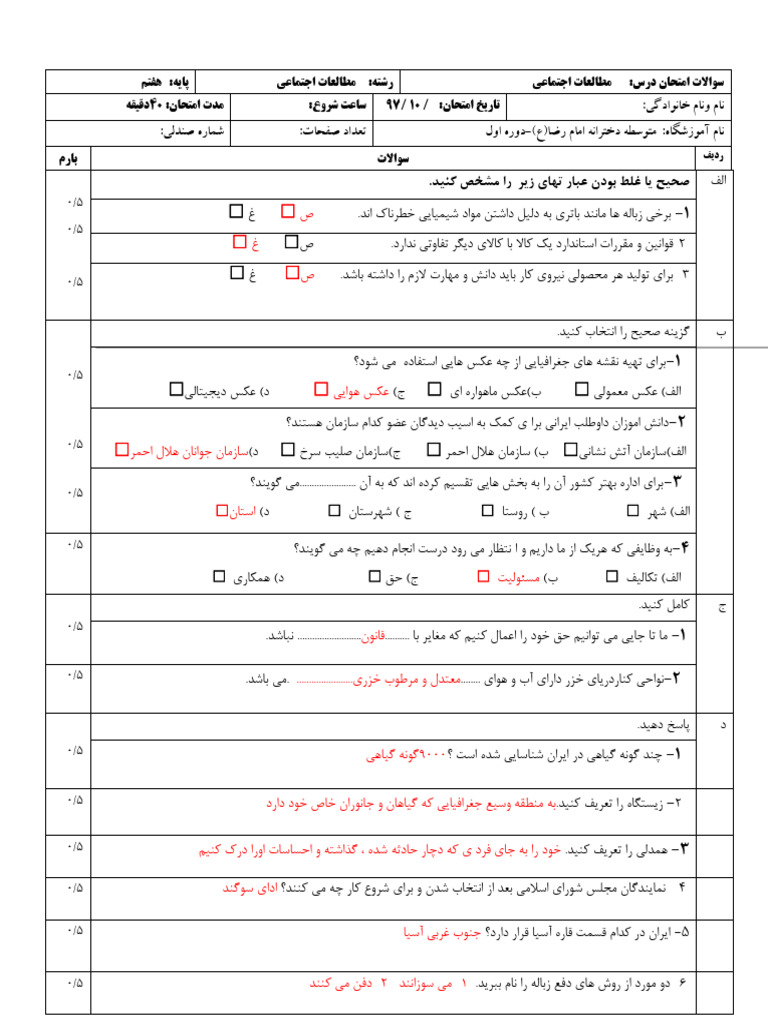 سوالات امتحان درس: مطالعات اجتماعی رشته: مطالعات اجتماعی پایه: هفتم
نام ونام خانوادگی: تاریخ امتحان: / ۱۰ /۹۷ ساعت شروع: مدت امتحان:۴۰دقیقه
نام آموزشگاه: متوسطه دخترانه امام رضا(ع)-دوره اول تعداد صفحات: شماره صندلی:
ردیف سوالات بارم
الف صحیح یا غلط بودن عبار تهای زیر را مشخص کنید.
۱- برخی زباله ها مانند باتری به دلیل داشتن مواد شیمیایی خطرناک اند. ص □ غ □ ۰/۵
۲ قوانین و مقررات استاندارد یک کالا با کالای دیگر تفاوتی ندارد. ص□ غ □ ۰/۵
۳ برای تولید هر محصولی نیروی کار باید دانش و مهارت لازم را داشته باشد. ص□ غ □ ۰/۵
ب گزینه صحیح را انتخاب کنید.
۱-برای تهیه نقشه های جغرافیایی از چه عکس هایی استفاده می شود؟ ۰/۵
الف) عکس معمولی □ ب)عکس ماهواره ای □ ج) عکس هوایی □ د) عکس دیجیتالی□
۲-دانش اموزان داوطلب ایرانی برا ی کمک به اسیب دیدگان عضو کدام سازمان هستند؟ ۰/۵
الف)سازمان آتش نشانی□ ب) سازمان هلال احمر □ ج)سازمان صلیب سرخ □ د)سازمان جوانان هلال احمر□
۳-برای اداره بهتر کشور آن را به بخش هایی تقسیم کرده اند که به آن ......................می گویند؟ ۰/۵
الف) شهر □ ب ) روستا □ ج ) شهرستان □ د) استان□
۴-به وظایفی که هریک از ما داریم و ا نتظار می رود درست انجام دهیم چه می گویند؟ ۰/۵
الف) تکالیف □ ب) مسئولیت □ ج) حق □ د) همکاری □
ج کامل کنید.
۱- ما تا جایی می توانیم حق خود را اعمال کنیم که مغایر با ..........قانون.......................... نباشد. ۰/۵
۲-نواحی کناردریای خزر دارای آب و هوای ........معتدل و مرطوب خزری....................... .می باشد. ۰/۵
د پاسخ دهید.
۱- چند گونه گیاهی در ایران شناسایی شده است ؟۹۰۰۰گونه گیاهی ۰/۵
۲- زیستگاه را تعریف کنید.به منطقه وسیع جغرافیایی که گیاهان و جانوران خاص خود دارد ۰/۵
۳- همدلی را تعریف کنید. خود را به جای فرد ی که دچار حادثه شده ، گذاشته و احساسات اورا درک کنیم ۰/۵
۴ نمایندگان مجلس شورای اسلامی بعد از انتخاب شدن و برای شروع کار چه می کنند؟ ادای سوگند ۰/۵
۵- ایران در کدام قسمت قاره آسیا قرار دارد؟ جنوب غربی آسیا ۰/۵
۶ دو مورد از روش های دفع زباله را نام ببرید. ۱ می سوزانند ۲ دفن می کنند ۰/۵